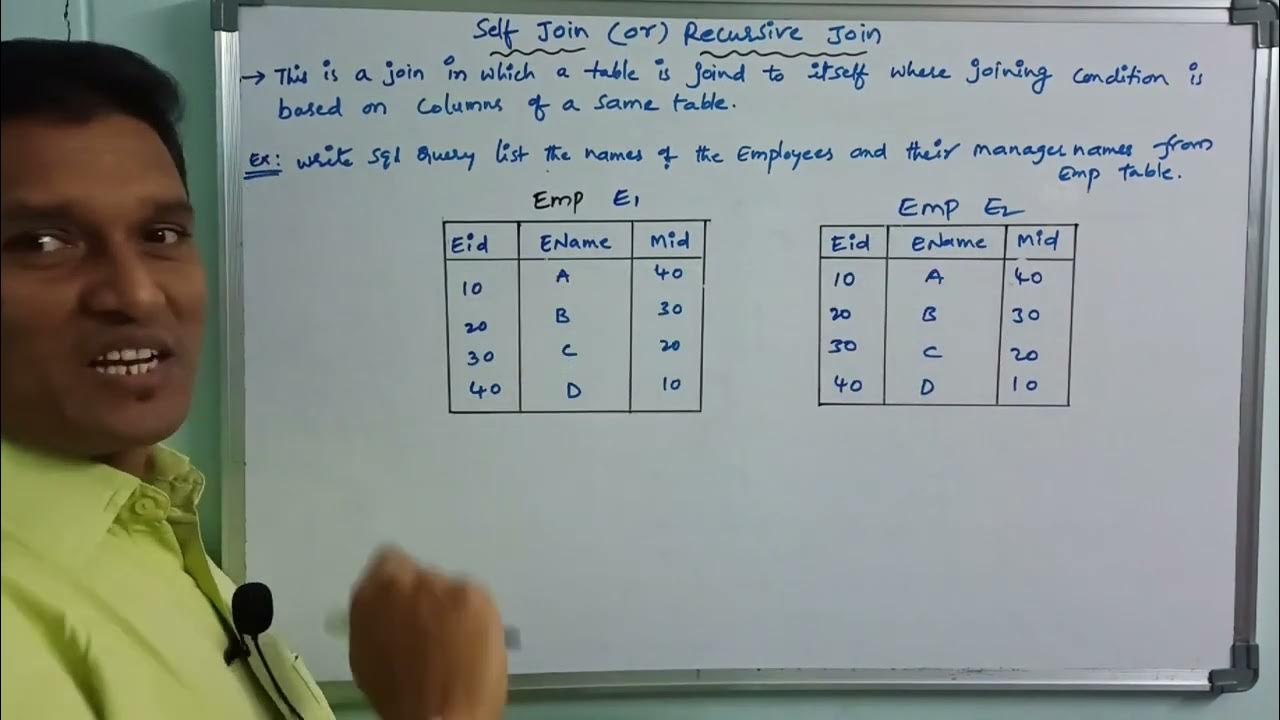 Self Join (or) Recursive Join
→ This is a join in which a table is joind to itself where joining condition is
based on columns of a same table.
Ex: write sql query list the names of the Employees and their manager names from
Emp table.
Emp E1
Eid EName Mid
10 A 40
20 B 30
30 C 20
40 D 10
Emp E2
Eid eName Mid
10 A 40
20 B 30
30 C 20
40 D 10